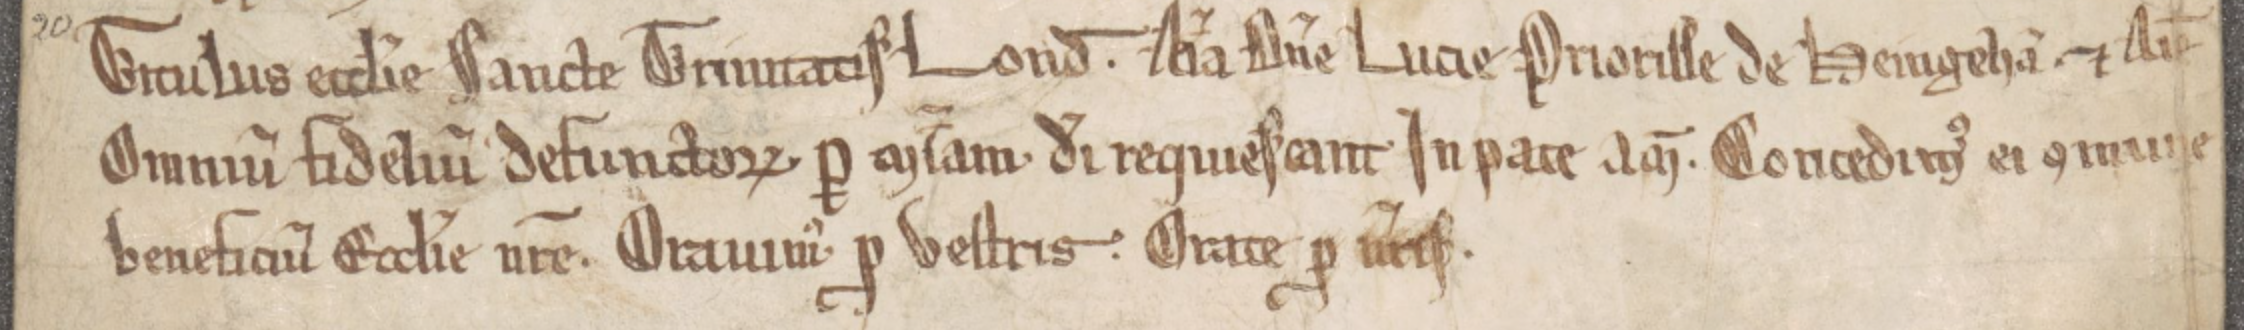 20 Titulus eccl̄ie Sancte Trinitatis Lond̄. Aīa Dn̄e Lucie Priorisse de Heingehā. ⁊ Aīe
Omniū fideliū defunctoꝝ ꝑ mīam dī requiescant In pace am̄. Concedimꝰ ei ꝯmune
beneficiū Eccl̄ie nr̄e. Orauimꝰ ꝓ vestris. Orate ꝓ nr̄is.